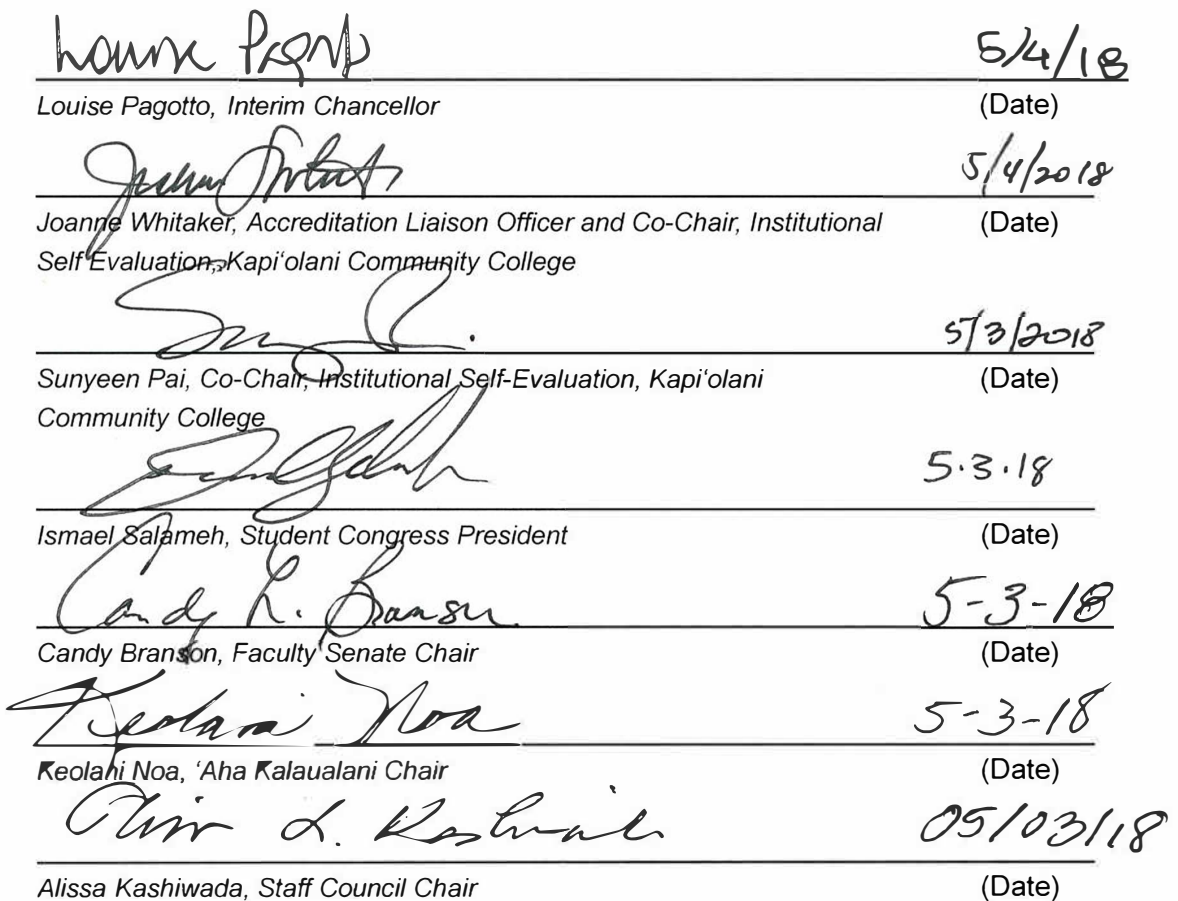 Louise Pagotto 5/4/18
Louise Pagotto, Interim Chancellor (Date)
5/4/2018
Joanne Whitaker, Accreditation Liaison Officer and Co-Chair, Institutional (Date)
Self Evaluation, Kapiʻolani Community College
5/3/2018
Sunyeen Pai, Co-Chair, Institutional Self-Evaluation, Kapiʻolani (Date)
Community College
5.3.18
Ismael Salameh, Student Congress President (Date)
Candy L. Branson 5-3-18
Candy Branson, Faculty Senate Chair (Date)
Keolani Noa 5-3-18
Keolani Noa, ʻAha Kalaualani Chair (Date)
L. Kashiwada 05/03/18
Alissa Kashiwada, Staff Council Chair (Date)